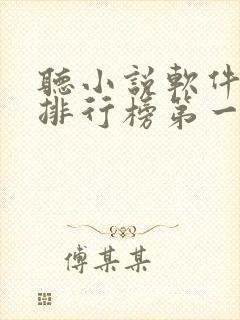 聽小說軟件
排行榜第一
傅某某